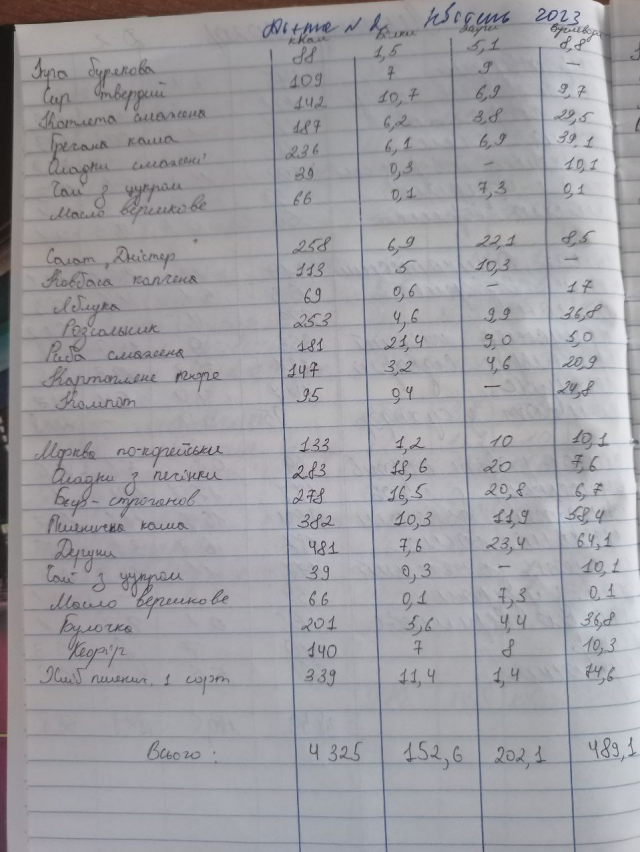 Дієта № 2 квітень 2023
ккал Білки Жири Вуглеводи
Ікра бурякова 88 1,5 5,1 8,8
Сир твердий 109 7 9 —
Котлета смажена 142 10,7 6,9 9,7
Гречана каша 187 6,2 3,8 29,5
Оладки смажені 236 6,1 6,9 39,1
Чай з цукром 39 0,3 — 10,1
Масло вершкове 66 0,1 7,3 0,1
Салат „Дністер" 258 6,9 22,1 8,5
Ковбаса копчена 113 5 10,3 —
Яблука 69 0,6 — 17
Розсольник 253 4,6 9,9 36,8
Риба смажена 181 21,4 9,0 5,0
Картоплене пюре 147 3,2 4,6 20,9
Компот 95 0,4 — 24,8
Морква по-корейськи 133 1,2 10 10,1
Оладки з печінки 283 18,6 20 7,6
Беф-строганов 278 16,5 20,8 6,7
Пшенична каша 382 10,3 11,9 58,4
Деруни 481 7,6 23,4 64,1
Чай з цукром 39 0,3 — 10,1
Масло вершкове 66 0,1 7,3 0,1
Булочка 201 5,6 4,4 36,8
Кефір 140 7 8 10,3
Хліб пшенич. 1 сорт 339 11,4 1,4 74,6
Всього: 4325 152,6 202,1 489,1